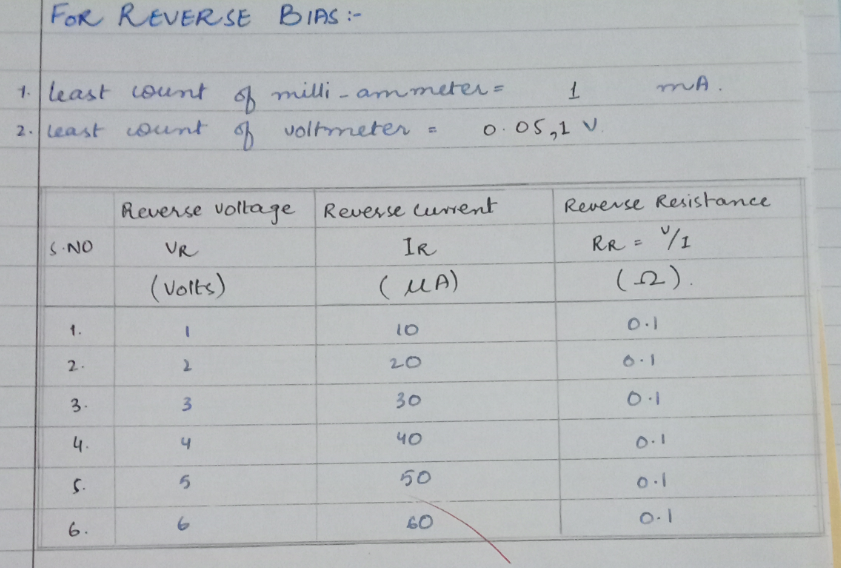 FOR REVERSE BIAS :-
1. least count of milli-ammeter = 1 mA.
2. least count of voltmeter = 0.05,1 V
S.NO Reverse voltage VR (Volts) Reverse current IR (μA) Reverse Resistance RR = V/I (Ω).
1. 1 10 0.1
2. 2 20 0.1
3. 3 30 0.1
4. 4 40 0.1
5. 5 50 0.1
6. 6 60 0.1